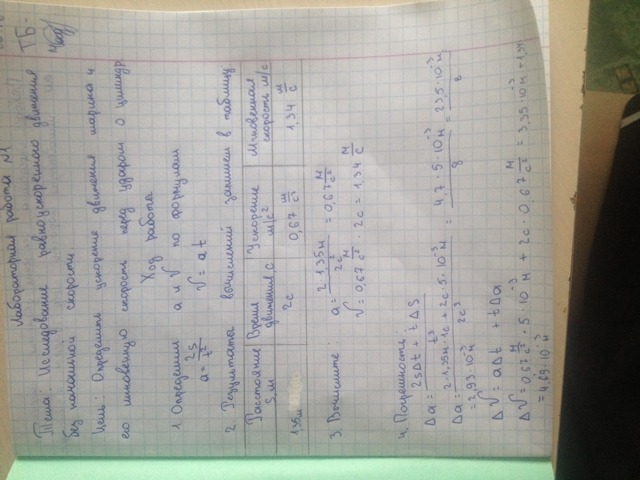 ТБ-
Лабораторная работа №1
Тема: Исследование равноускоренного движения
без начальной скорости.
Цель: Определить ускорение движения шарика и
его мгновенную скорость перед ударом о цилиндр
Ход работы
1. Определили a и V по формулам
a = 2S/t² V = at
2. Результаты вычислений запишем в таблицу:
Расстояние S, м | Время движения, с | Ускорение м/с² | Мгновенная скорость м/с
1,35м | 2с | 0,67 м/с² | 1,34 м/с
3. Вычислите: a = 2·1,35м/2с² = 0,67 м/с²
V = 0,67 м/с² · 2с = 1,34 м/с
4. Погрешность:
Δa = 2SΔt + tΔS / t³
Δa = 2·1,35м·1с + 2с·5·10⁻³м / 2с³ = 4,7·5·10⁻³м / 8 = 23,5·10⁻³м / 8
= 2,93·10⁻³м
ΔV = aΔt + tΔa
ΔV = 0,67 м/с² · 5·10⁻³м + 2с · 0,67 м/с² = 3,35·10⁻³м + 1,34
= 4,69·10⁻³м